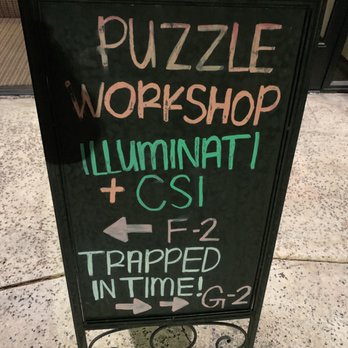 PUZZLE
WORKSHOP
ILLUMINATI
+ CSI
← F-2
TRAPPED
IN TIME!
→ → G-2